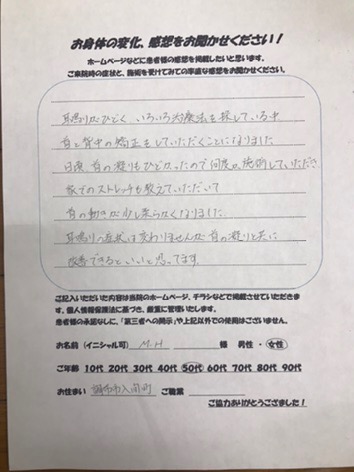 お身体の変化、感想をお聞かせください！
ホームページなどに患者様の感想を掲載したいと思います。
ご来院時の症状と、施術を受けてみての率直な感想をお聞かせください。
耳鳴りがひどく いろいろ治療法を探している中
首と背中の矯正をしていただくことになりました
日頃 首の凝りもひどかったので何度か施術していただき
家でのストレッチも教えていただいて
首の動きが少し柔らかくなりました
耳鳴りの症状は変わりませんが首の凝りと共に
改善できるといいと思ってます。
ご記入いただいた内容は当院のホームページ、チラシなどで掲載させていただきま
す。個人情報保護法に基づき、厳重に管理いたします。
患者様の承諾なしに、「第三者への開示」や上記以外での使用はございません。
お名前（イニシャル可） M.H 様 男性・女性
ご年齢 10代 20代 30代 40代 50代 60代 70代 80代 90代
お住まい 調布市入間町 ご職業
ご協力ありがとうございました！